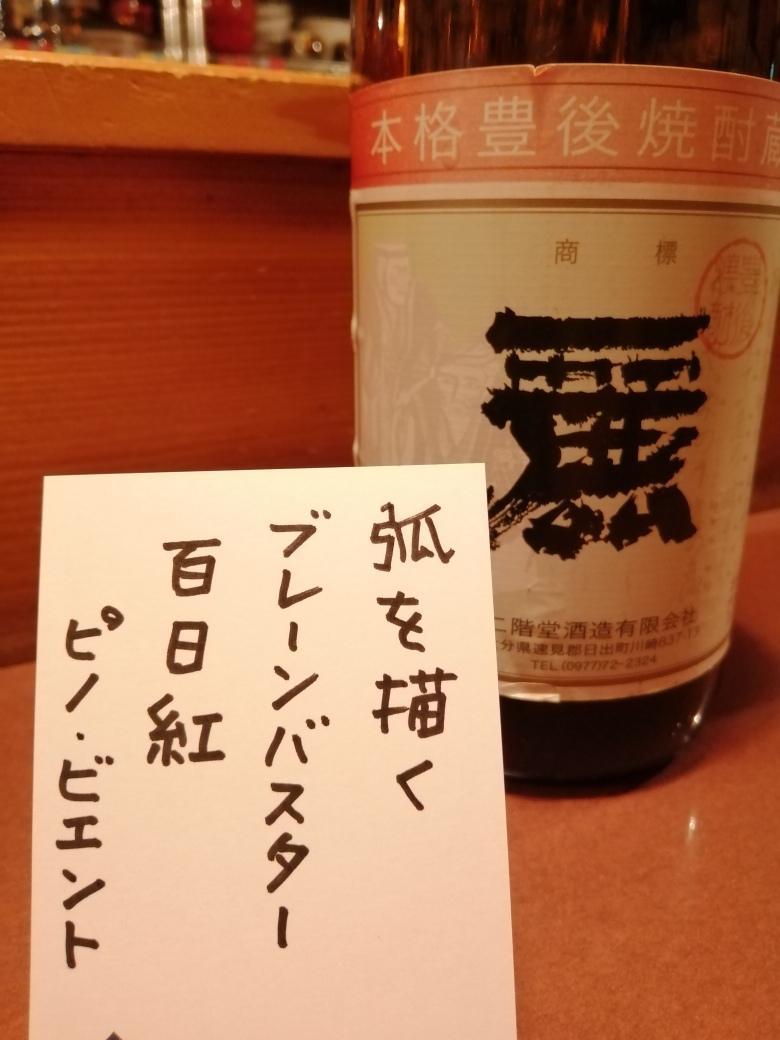 本格豊後焼酎蔵
商標
二階堂酒造有限会社
分県速見郡日出町川崎837-15
TEL(0977)72-2324
弧を描く
ブレーンバスター
百日紅
ピノ・ビエント